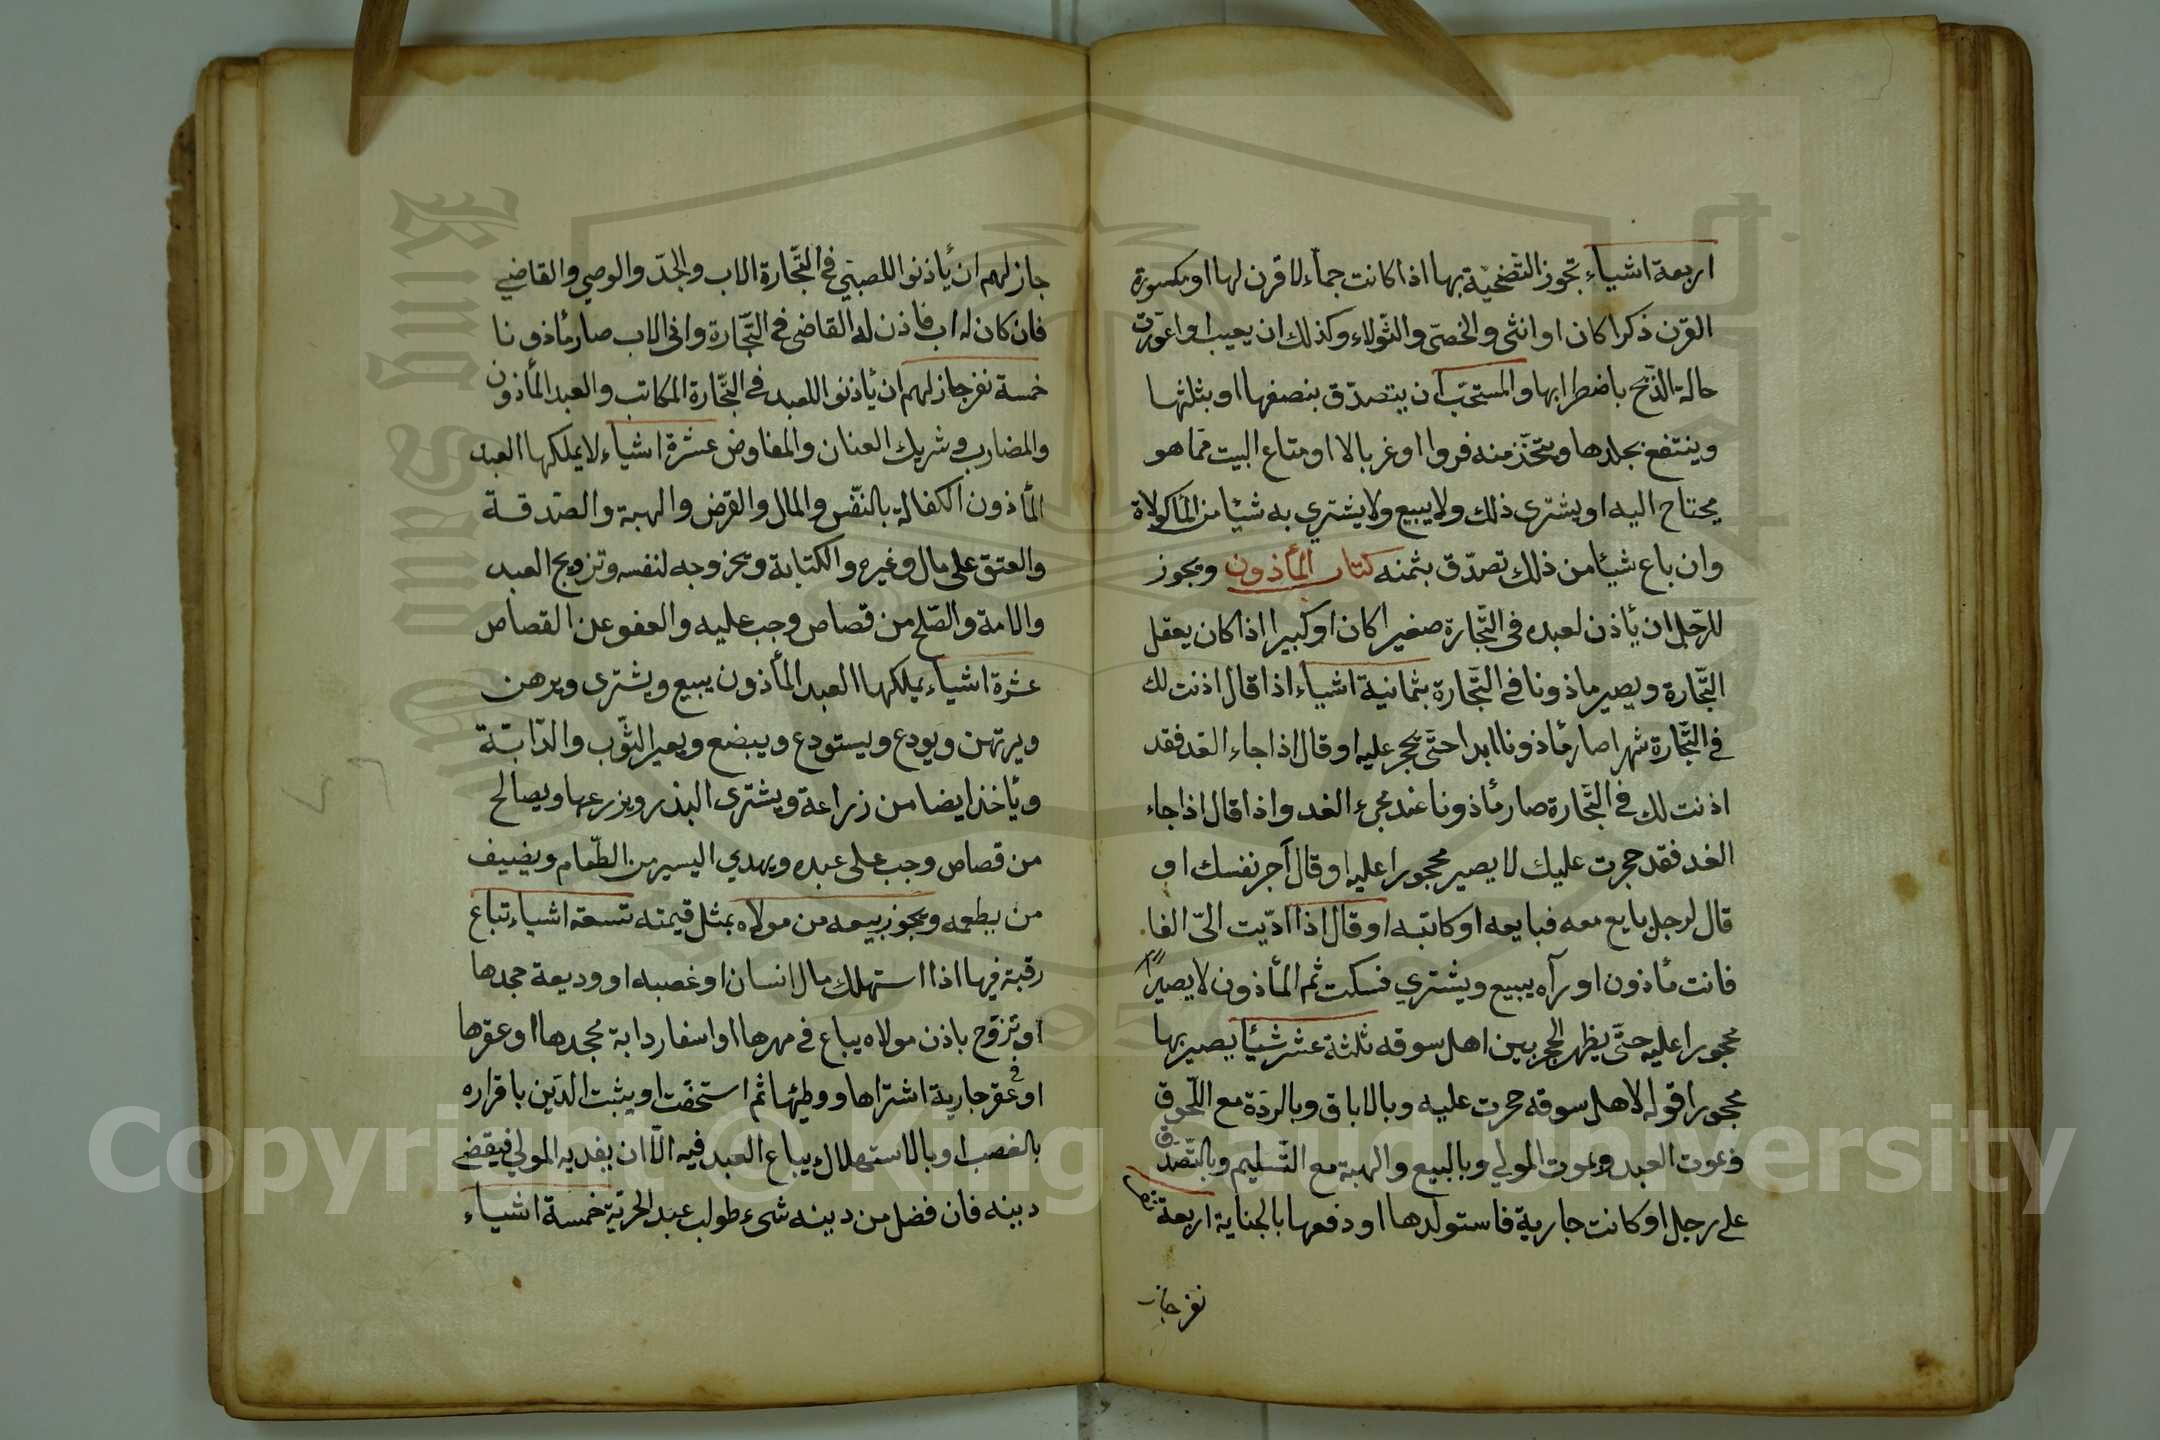 اربعة اشياء تجوز التضحية بها اذا كانت جماء لا قرن لها او مكسورة
القرن ذكرا كان او انثى والخصى والثولاء وكذلك ان يعيب او اعورت
حالة الذبح باضطرابها والمستحب ان يتصدق بنصفها او بثلثها
وينتفع بجلدها ويتخذ منه فروا او غربالا او متاع البيت مما هو
يحتاج اليه او يشترى ذلك ولا يبيع ولا يشتري به شيئا من المأكولاة
وان باع شيئا من ذلك تصدق بثمنه كتاب المأذون ويجوز
للرجل ان يأذن لعبده فى التجارة صغيرا كان او كبيرا اذا كان يعقل
التجارة ويصير ماذونا فى التجارة بثمانية اشياء اذا قال اذنت لك
فى التجارة شهرا صار مأذونا ابدا حتى يحجر عليه او قال اذا جاء الغد فقد
اذنت لك فى التجارة صار مأذونا عند مجىء الغد واذا قال اذا جاء
الغد فقد حجرت عليك لا يصير محجورا عليه او قال آجر نفسك او
قال لرجل بايع معه فبايعه او كاتبه او قال اذا اديت الىّ الفا
فانت مأذون او رآه يبيع ويشتري فسكت ثم المأذون لا يصير
محجورا عليه حتى يظهر الحجر بين اهل سوقه ثلثة عشر شيئا يصير بها
محجورا قوله لاهل سوقه حجرت عليه وبالاباق وبالردة مع اللحوق
وبموت العبد وبموت المولي وبالبيع والهبة مع التسليم وبالتصدق
على رجل او كانت جارية فاستولدها او دفعها بالجناية اربعة
نفر جاز
جاز لهم ان يأذنوا للصبي فى التجارة الاب والجد والوصي والقاضي
فان كان له اب فاذن له القاضى فى التجارة وابى الاب صار مأذونا
خمسة نفر جاز لهم ان يأذنوا للعبد فى التجارة المكاتب والعبد المأذون
والمضارب وشريك العنان والمفاوض عشرة اشياء لا يملكها العبد
المأذون الكفالة بالنفس والمال والقرض والهبة والصدقة
والعتق على مال وغيره والكتابة وتزوجه لنفسه وتزويج العبد
والامة والصلح من قصاص وجب عليه والعفو عن القصاص
عشرة اشياء يملكها العبد المأذون يبيع ويشترى ويرهن
ويرتهن ويودع ويستودع ويبضع ويعير الثوب والدابة
ويأخذ ايضا من زراعة ويشترى البذر ويزرعها ويصالح
من قصاص وجب على عبده ويهدي اليسير من الطعام ويضيف
من يطعمه ويجوز بيعه من مولاه بمثل قيمته تسعة اشياء تباع
رقبة فيها اذا استهلك مال انسان او غصبه او وديعة جحدها
او تزوج باذن مولاه يباع فى مهرها او اسفار دابة جحدها او عقرها
او فى عقر جارية اشتراها ووطئها ثم استحقت او يثبت الدين باقراره
بالغصب او بالاستهلاك يباع العبد فيه الا ان يفديه المولي فيقضى
دينه فان فضل من دينه شىء طولب عبد الحرية خمسة اشياء
Copyright © King Saud University
King Saud University
1957